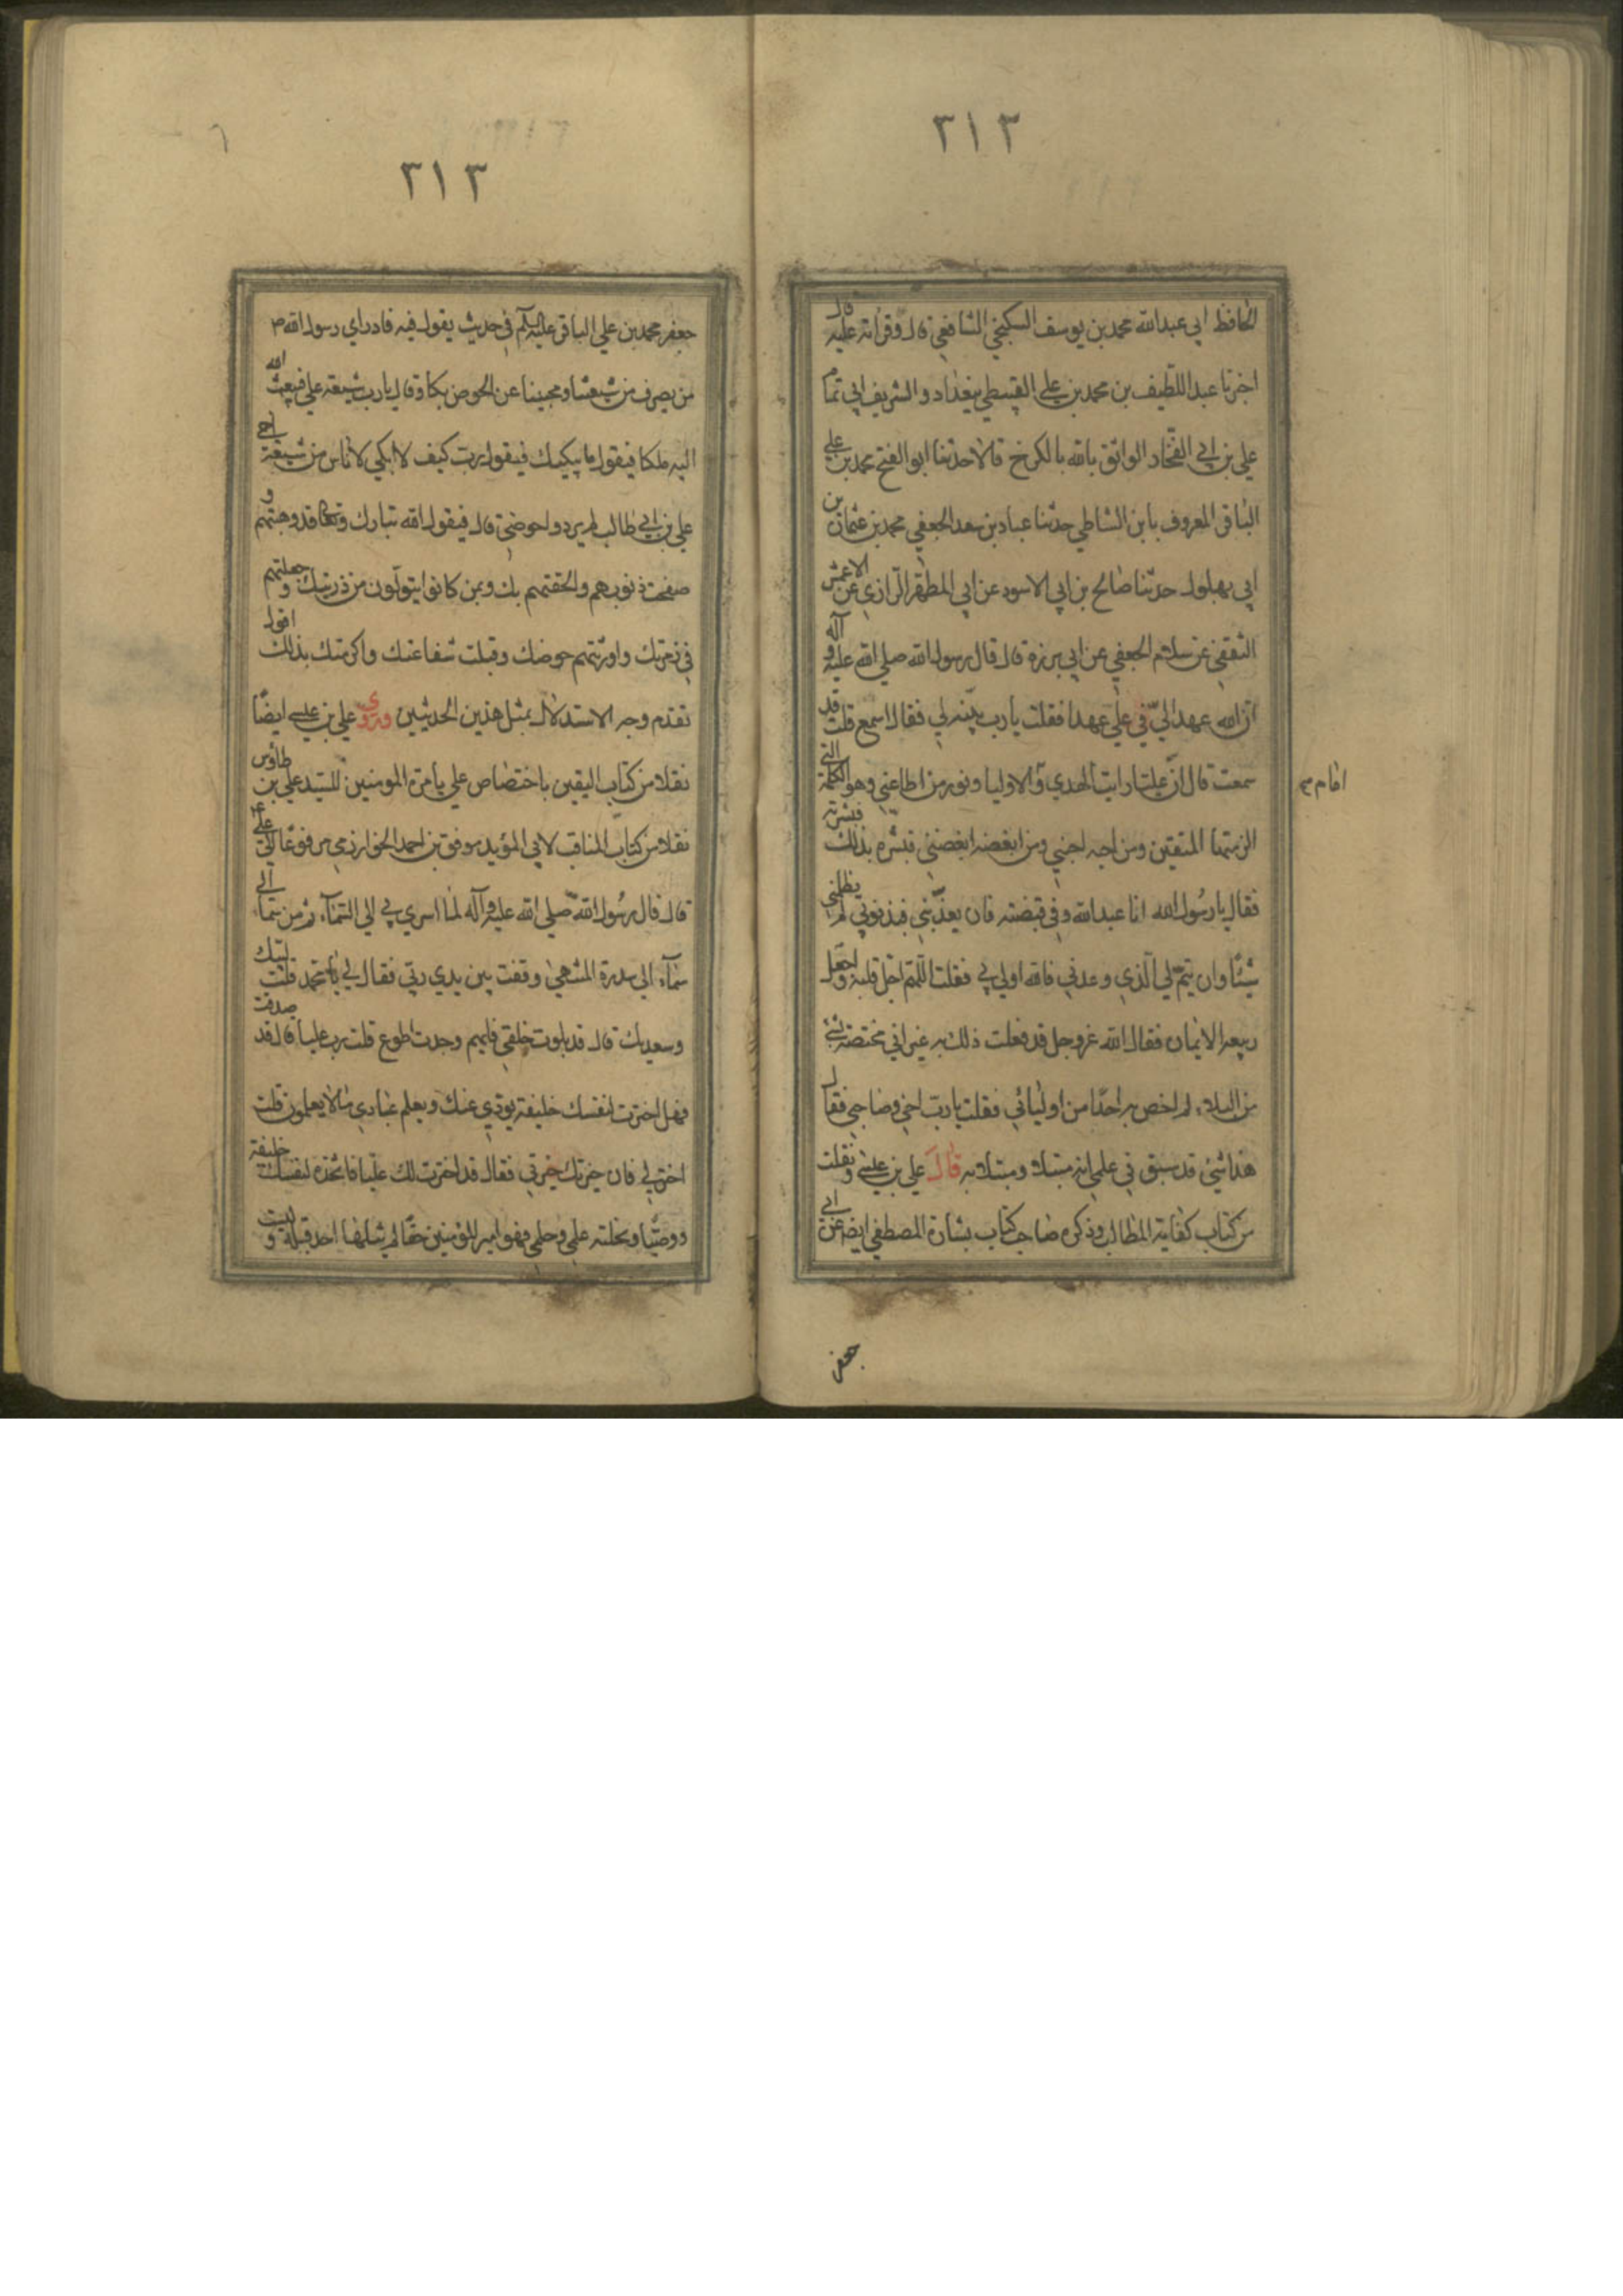 ٣١٢
الحافظ ابي عبدالله محمد بن يوسف الشافعي قال وقراته عليه قال
اخبرنا عبد اللطيف بن محمد بن علي القبيطي ببغداد والشريف ابي تمام
علي بن ابي الفخار الواثق بالله بالكرخ قالا حدثنا ابو الفتح محمد بن علي
الباقي المعروف بابن الشاطي حدثنا عباد بن سعد الجعفي محمد بن عثمان بن
ابي بهلول حدثنا صالح بن ابي الاسود عن ابي المطهر الرازي عن الاعمش
الثقفي عن سلام الجعفي عن ابي برزة قال قال رسول الله صلي الله عليه وآله
ان الله عهد الي في علي عهدا فقلت يا رب بينه لي فقال اسمع قلت قد
سمعت قال ان عليا راية الهدي والاوليا ونور من اطاعني وهو الكلمة التي
امام
الزمتها المتقين ومن احبه احبني ومن ابغضه ابغضني فبشره بذلك فبشرته
فقال يا رسول الله انا عبدالله وفي قبضته فان يعذبني فبذنوبي لم يظلمني
شيئا وان يتم لي الذي وعدني فالله اولي بي فقلت اللهم اجل قلبه واجعل
ربيعه الايمان فقال الله عز وجل قد فعلت ذلك به غير اني مختصه بشي
من البلاء لم اخص به احدا من اوليائي فقلت يا رب اخي وصاحبي فقال
هذا شئ قد سبق في علمي انه مبتلا ومبتلا به قال علي بن عيسي ونقلت
من كتاب كفاية الطالب وذكره صاحب كتاب بشارة المصطفي ايضه عن ابي
جعفر
٣١٣
جعفر محمد بن علي الباقر عليه السلم في حديث يقول فيه فاذا راي رسول الله
من يصرف من شيعتنا ومحبينا عن الحوض بكا وقال يا رب شيعة علي فيبعث الله
اليه ملكا فيقول ما يبكيك فيقول يا رب كيف لا ابكي لاناس من شيعة اخي
علي بن ابي طالب لم يردوا حوضي قال فيقول الله تبارك وتعالي قد وهبتهم و
صفحت ذنوبهم والحقتهم بك وبمن كانوا يتولون من ذريتك وجعلتهم
في زمرتك واورثتهم حوضك وقبلت شفاعتك واكرمتك بذلك اقول
تقدم وجه الاستدلال بمثل هذين الحديثين وروي علي بن عيسي ايضا
نقلا من كتاب اليقين باختصاص علي بامرة المومنين للسيد علي بن طاؤس
نقلا من كتاب المناقب لابي المؤيد موفق بن احمد الخوارزمي مرفوعا الي علي
قال قال رسول الله صلي الله عليه وآله لما اسري بي الي السماء ثم من سماء الي
سماء الي سدرة المنتهي وقفت بين يدي ربي فقال لي يا محمد قلت لبيك
وسعديك قال قد بلوت خلقي فايهم وجدت اطوع قلت رب عليا قال قد صدقت
فهل اخترت لنفسك خليفة يودي عنك ويعلم عبادي ما لا يعلمون قلت
اختر لي فان خيرتك خيرتي فقال قد اخترت لك عليا فاتخذه لنفسك خليفة
ووصيا ونحلته علمي وحلمي فهو امير المؤمنين حقا لم ينلها احد قبله و ليست